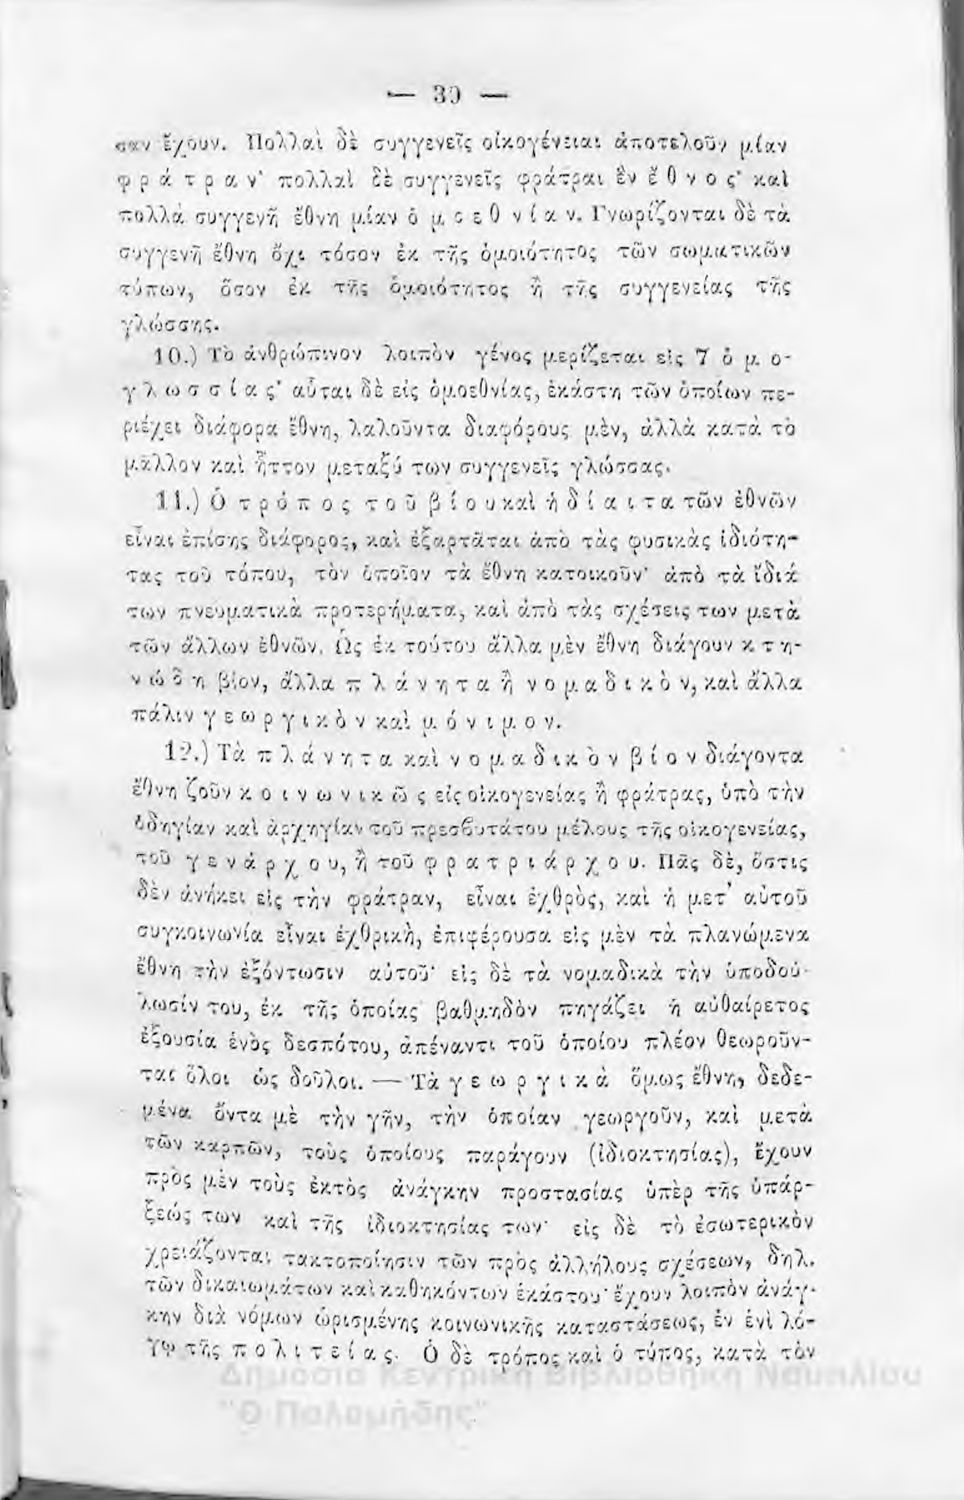 — 30 —
σαν ἔχουν. Πολλαὶ δὲ συγγενεῖς οἰκογένειαι ἀποτελοῦν μίαν
φ ρ ά τ ρ α ν· πολλαὶ δὲ συγγενεῖς φράτραι ἓν ἔ θ ν ο ς· καὶ
πολλὰ συγγενῆ ἔθνη μίαν ὁ μ ο ε θ ν ί α ν. Γνωρίζονται δὲ τὰ
συγγενῆ ἔθνη ὄχι τόσον ἐκ τῆς ὁμοιότητος τῶν σωματικῶν
τύπων, ὅσον ἐκ τῆς ὁμοιότητος ἢ τῆς συγγενείας τῆς
γλώσσης.
10.) Τὸ ἀνθρώπινον λοιπὸν γένος μερίζεται εἰς 7 ὁ μ ο-
γ λ ω σ σ ί α ς· αὗται δὲ εἰς ὁμοεθνίας, ἑκάστη τῶν ὁποίων πε-
ριέχει διάφορα ἔθνη, λαλοῦντα διαφόρους μὲν, ἀλλὰ κατὰ τὸ
μᾶλλον καὶ ἧττον μεταξύ των συγγενεῖς γλώσσας.
11.) Ὁ τ ρ ό π ο ς τ ο ῦ β ί ο υ καὶ ἡ δ ί α ι τ α τῶν ἐθνῶν
εἶναι ἐπίσης διάφορος, καὶ ἐξαρτᾶται ἀπὸ τὰς φυσικὰς ἰδιότη-
τας τοῦ τόπου, τὸν ὁποῖον τὰ ἔθνη κατοικοῦν· ἀπὸ τὰ ἴδιά
των πνευματικὰ προτερήματα, καὶ ἀπὸ τὰς σχέσεις των μετὰ
τῶν ἄλλων ἐθνῶν. Ὡς ἐκ τούτου ἄλλα μὲν ἔθνη διάγουν κ τ η-
ν ώ δ η βίον, ἄλλα π λ ά ν η τ α ἢ ν ο μ α δ ι κ ὸ ν, καὶ ἄλλα
πάλιν γ ε ω ρ γ ι κ ὸ ν καὶ μ ό ν ι μ ο ν.
12.) Τὰ π λ ά ν η τ α καὶ ν ο μ α δ ι κ ὸ ν β ί ο ν διάγοντα
ἔθνη ζοῦν κ ο ι ν ω ν ι κ ῶ ς εἰς οἰκογενείας ἢ φράτρας, ὑπὸ τὴν
ὁδηγίαν καὶ ἀρχηγίαν τοῦ πρεσβυτάτου μέλους τῆς οἰκογενείας,
τοῦ γ ε ν ά ρ χ ο υ, ἢ τοῦ φ ρ α τ ρ ι ά ρ χ ο υ. Πᾶς δὲ, ὅστις
δὲν ἀνήκει εἰς τὴν φράτραν, εἶναι ἐχθρὸς, καὶ ἡ μετ' αὐτοῦ
συγκοινωνία εἶναι ἐχθρικὴ, ἐπιφέρουσα εἰς μὲν τὰ πλανώμενα
ἔθνη τὴν ἐξόντωσιν αὐτοῦ· εἰς δὲ τὰ νομαδικὰ τὴν ὑποδού-
λωσίν του, ἐκ τῆς ὁποίας βαθμηδὸν πηγάζει ἡ αὐθαίρετος
ἐξουσία ἑνὸς δεσπότου, ἀπέναντι τοῦ ὁποίου πλέον θεωροῦν-
ται ὅλοι ὡς δοῦλοι. — Τὰ γ ε ω ρ γ ι κ ὰ ὅμως ἔθνη, δεδε-
μένα ὄντα μὲ τὴν γῆν, τὴν ὁποίαν γεωργοῦν, καὶ μετὰ
τῶν καρπῶν, τοὺς ὁποίους παράγουν (ἰδιοκτησίας), ἔχουν
πρὸς μὲν τοὺς ἐκτὸς ἀνάγκην προστασίας ὑπὲρ τῆς ὑπάρ-
ξεώς των καὶ τῆς ἰδιοκτησίας των· εἰς δὲ τὸ ἐσωτερικὸν
χρειάζονται τακτοποίησιν τῶν πρὸς ἀλλήλους σχέσεων, δηλ.
τῶν δικαιωμάτων καὶ καθηκόντων ἑκάστου· ἔχουν λοιπὸν ἀνάγ-
κην διὰ νόμων ὡρισμένης κοινωνικῆς καταστάσεως, ἐν ἑνὶ λό-
γῳ τῆς π ο λ ι τ ε ί α ς. Ὁ δὲ τρόπος καὶ ὁ τύπος, κατὰ τὸν
Δημόσια Κεντρική Βιβλιοθήκη Ναυπλίου
"Ο Παλαμήδης"